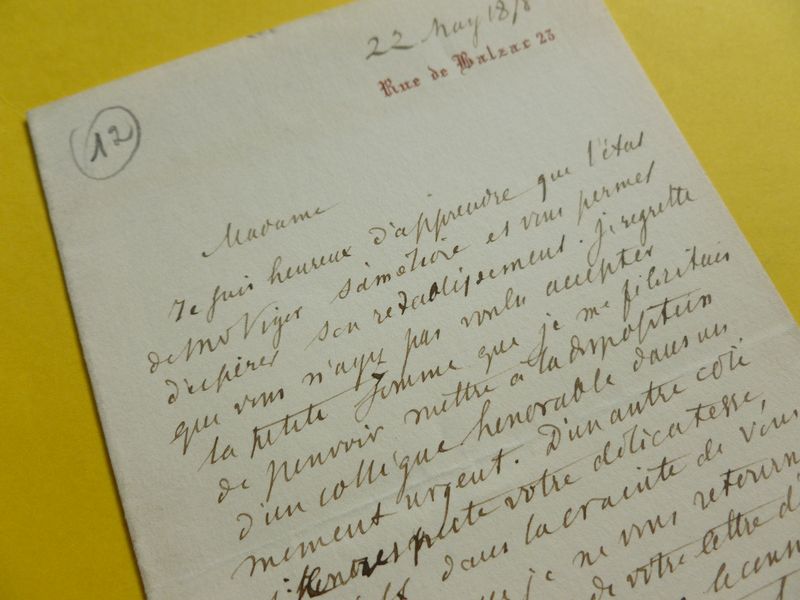 22 May 18
Rue de Balzac 23
12
Madame
Je suis heureux d'apprendre que l'état
de Mr Viger s'améliore et vous permet
d'espérer son rétablissement. Je regrette
que vous n'ayez pas voulu accepter
la petite somme que je me félicitais
de pouvoir mettre à la disposition
d'un collègue honorable dans un
moment urgent. D'un autre côté
respecte votre délicatesse,
dans la crainte de vous
je ne vous retourn
de votre lettre d